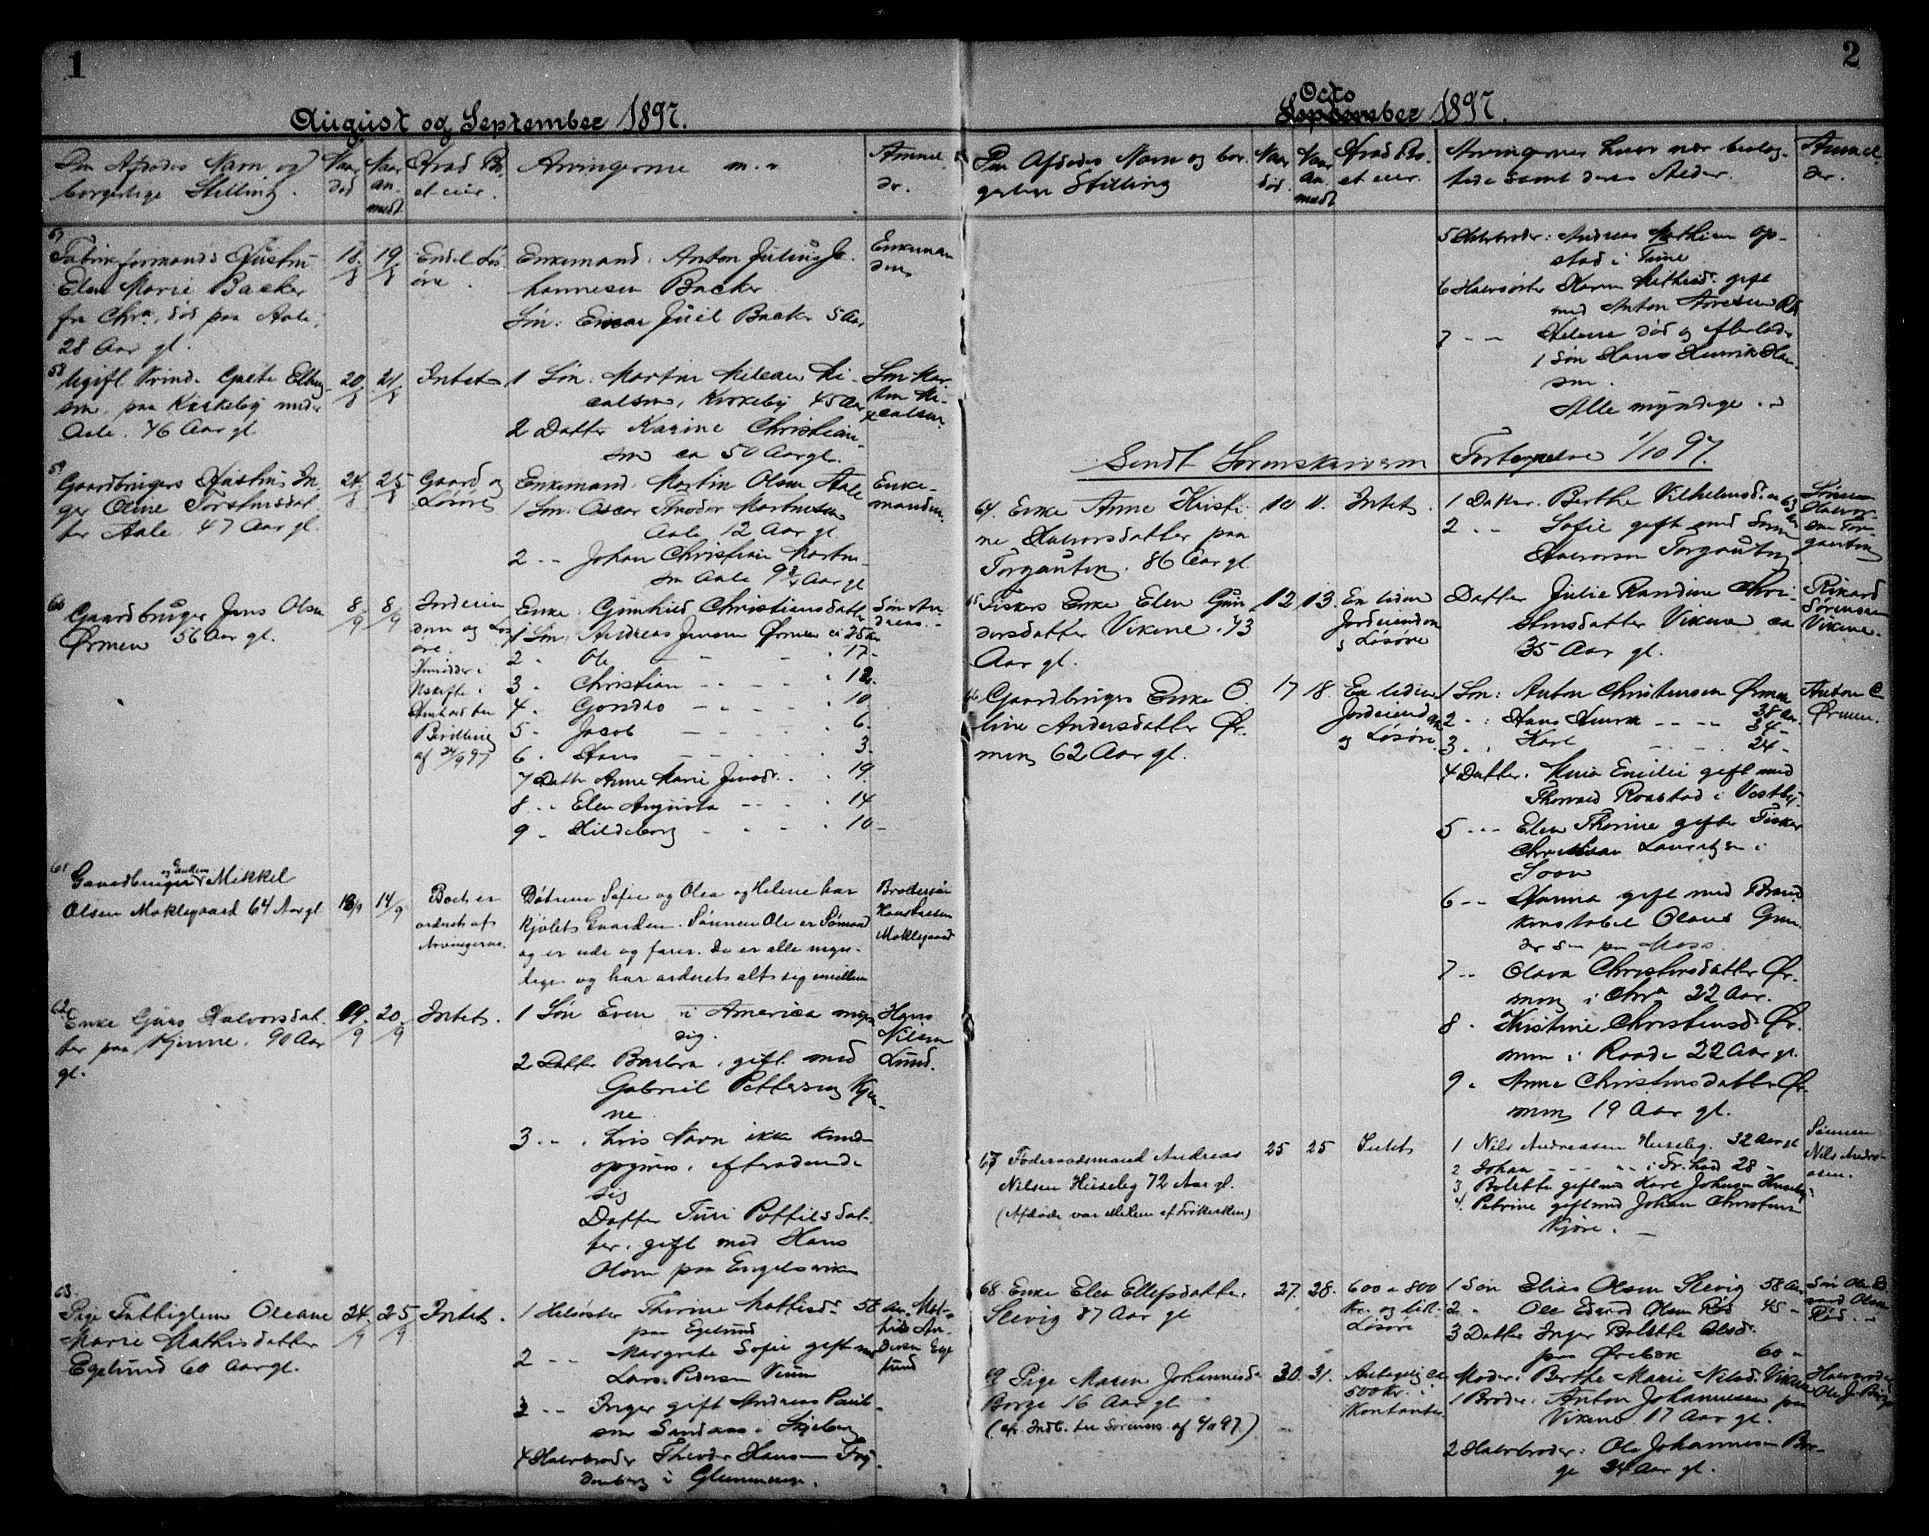 1
August og September 1897.
Den Afdødes Navn og
borgerlige Stilling.
Naar
død
Naar
an-
meldt
Hvad Bo-
et eier.
Arvingerne m.v.
Anmel-
der.
57
Fabrikformands Hustru
Elen Marie Backer
fra Chra, død paa Aale,
28 Aar gl.
18/8
19/8
Endel Løs-
øre.
Enkemand: Anton Julius Jo-
hannesen Backer
Søn: Einar Juel Backer 5 Aar
Enkeman-
den
58
Ugift Kvind. Grete Elling-
sen, paa Kirkeby med-
Aale. 76 Aar gl.
20/8
21/8
Intet
1 Søn: Martin Mi-
calsen, Kirkeby 45 Aar
2 Datter Karine Christian-
sen ca 50 Aar gl.
Søn Mar-
tin Mi-
calsen
59
Gaardbrugers Hustru In-
ger Oline Torstensdat-
ter Aale. 47 Aar gl.
24/8
25/8
Gaard og
Løsøre
Enkemand: Martin Olsen Aale
1 Søn: Oscar Theodor Martinsen
Aale 12 Aar gl.
2 " Johan Christian Martin-
sen Aale 9 3/4 Aar gl
Enke-
manden.
60
Gaardbruger Jens Olsen
Ørmen 56 Aar gl.
8/9
8/9
Jordeien-
dom og Løs-
øre.
Uskifte
Bevilling
af 24/9 97
Enke: Gunhild Christiansdatter
1 Søn: Andreas Jensen Ørmen 25 Aar
2 " Ole 17 -
3 " Christian 12 -
4 " 10
5 " Jacob 6 -
6 " Hans 3 -
7 Datter Anne Marie Jensdr. 19
8 " Elen Augusta 14
9 " Hildeborg 10 -
Søn An-
dreas.
61
og Enkem.
Gaardbruger Mikkel
Olsen Moklegaard 64 Aar gl
13/9
14/9
Boet er
ordnet af
Arvingerne.
Døtrene Sofie og Olea og Helene har
kjøbt Gaarden. Sønnen Ole er Sømand
og er ude og farer. De er alle myn-
dige og har ordnet alt sig imellem
Brodersøn
Moklegaard
62
Enke Guro Halvorsdat-
ter paa Kjenne. 90 Aar
gl.
19/9
20/9
Intet.
1 Søn Even i America myn-
dig.
2 Datter Barbra, gift med
Gabriel Pettersen Kjen-
ne
3 " , hvis Navn ikke kunde
opgives, efterladende
sig
Datter Turi Pettersdat-
ter, gift med Hans
Olsen paa Engelsviken
Hans
Nilsen
Lund.
63.
Pige Fattiglem Oleane
Marie Mathisdatter
Egelund 60 Aar gl.
24/9
25/9
Intet.
1 Helsøster Thorine Mathisd. 58 Aar
paa Egelund
2 " Margrete Sofie gift med
Lars Pedersen
3 " Inger gift Andreas Paul-
sen Sandaas i Skjeberg
4 Halvbroder Theodor Hansen Fry-
denberg i Glemminge.
Mat-
hias An-
dersen Ege-
lund
2
Octo
September 1897.
Den Afdødes Navn og bor-
gerlige Stilling
Naar
død.
Naar
an-
meldt
Hvad Bo-
et eier.
Arvingernes Navn nær beslæg-
tede samt deres Alder.
Anmel-
der.
5 Halvbroder: Andreas Mathisen Op-
stad i Tune
6 Halvsøster Karen Mathisd. gift
med Anton
7 " Helene død og efterladt
1 Søn Hans Henrik Han-
sen.
Alle myndige.
Sendt Sorenskriveren Fortegnelse 1/10 97.
64. Enke Anne Kristi-
ne Halvorsdatter paa
Torgauten. 86 Aar gl.
10
11.
Intet.
1 Datter. Berthe Vilhelmsd. 63 Aar
2 " Sofie gift med Søren
Halvorsen Torgauten
Søren
Halvor-
sen Tor-
gauten
65 Fiskers Enke Elen Gun-
dersdatter Vikene. 73
Aar gl.
12
13.
En liden
Jordeiendom
og Løsøre
Datter Julie Randine Chri-
stensdatter Vikene ca
35 Aar gl.
Rikard
Sørensen
Vikene.
66 Gaardbrugers Enke O-
line Andersdatter Ør-
men 62 Aar gl.
17
18
En liden
Jordeiendom
og Løsøre.
1 Søn: Anton Christensen Ørmen
38 Aar.
2 " : Hans Henrik 34 -
3 " Karl 24 -
4 Datter. Emilie gift med
Thorvald Roastad i Vestby.
5 " Elen Thorine gift Fisker
Christian Lauritzen i
Soon
6 " Hanna gift med Brand-
konstabel Olaus Gun-
dersen paa Moss.
7 " Olava Christensdatter Ør-
men i Chra 22 Aar.
8 " Kristine Christensd. Ør-
men i Raade 22 Aar gl.
9 " Anna Christensdatter Ør-
men 19 Aar gl.
Anton C.
Ørmen.
67 Føderaadsmand Andreas
Nilsen Huseby 72 Aar gl.
(Afdøde var Medlem af Frikirken)
25
25
Intet
1 Nils Andreasen Huseby. 32 Aar gl
2 Johan " i Fr.stad 28 -
3 Bolette gift med Karl Johnsen Huseby
4. Petrine gift med Johan Christensen
Kjøre.
Sønnen
Nils Andre-
asen.
68. Enke Elen Ellefsdatter
Slevig 87 Aar gl
27.
28.
600 a 800
Kr. og lidt
Løsøre
1 Søn Elias Olsen Slevig 58 Aar
2 " Ole Edvard Olsen Rød 45 "
3 Datter Inger Bolette Olsd.
paa Ørebæk 60 "
Søn Ole Ed-
vard Olsen
Rød.
69 Pige Maren Johannesd.
Borge 16 Aar gl
(cfr. Indb. til Sorenskr. af 4/11 97.)
30.
31.
Antagelig ca
500 Kr. i
Kontanter
Moder: Berthe Marie Nilsd. Vikene
1 Broder: Anton Johannesen paa
Vikene 17 Aar gl.
2 Halvbroder: Ole Johannesen Bor-
ge 24 Aar gl.
Halvbroder
Ole J. Borge